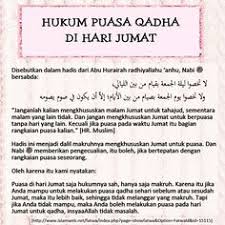 HUKUM PUASA QADHA
DI HARI JUMAT
Disebutkan dalam hadis dari Abu Hurairah radhiyallahu 'anhu, Nabi ﷺ
bersabda:
لا تخصوا ليلة الجمعة بقيام من بين الليالي،
ولا تخصوا يوم الجمعة بصيام من بين الأيام، إلا أن يكون في صوم يصومه
"Janganlah kalian mengkhususkan malam Jumat untuk tahajud, sementara
malam yang lain tidak. Dan jangan mengkhususkan Jumat untuk berpuasa
tanpa hari yang lain. Kecuali jika puasa pada waktu Jumat itu bagian
rangkaian puasa kalian." [HR. Muslim]
Hadis ini menjadi dalil makruhnya mengkhususkan Jumat untuk puasa. Dan
Nabi ﷺ memberikan pengecualian, itu boleh, jika bertepatan dengan
rangkaian puasa seseorang.
Oleh karena itu kami nyatakan:
Puasa di hari Jumat saja hukumnya sah, hanya saja makruh. Karena itu jika
Anda mampu untuk melakukan puasa qadha sehari sebelum atau sesudah
Jumat, maka itu lebih baik, sehingga tidak melanggar larangan. Tapi jika
Anda tidak mampu, maka Anda boleh melakukan puasa pada hari Jumat
untuk qadha, insyaaAllah tidak masalah.